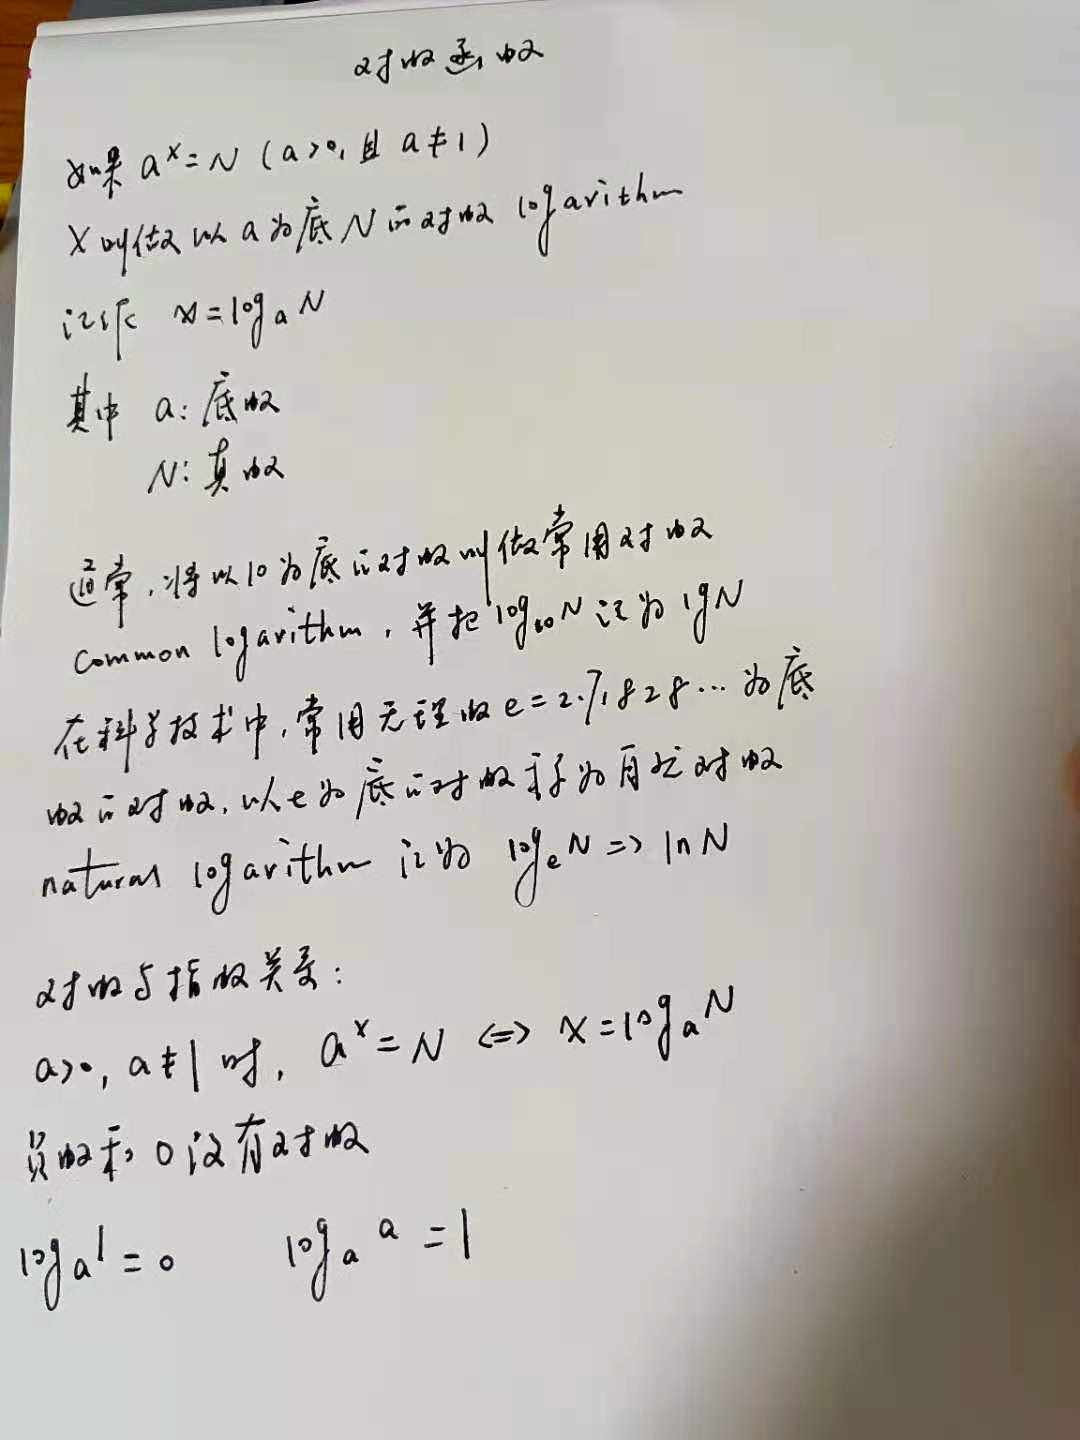 对数函数
如果 aˣ=N (a>0,且 a≠1)
X叫做以a为底N的对数 logarithm
记作 x=logₐN
其中 a:底数
N:真数
通常,将以10为底的对数叫做常用对数
common logarithm,并把 log₁₀N 记为 lgN
在科学技术中,常用无理数e=2.71828…为底
数的对数,以e为底的对数称为自然对数
natural logarithm 记为 logₑN => lnN
对数与指数关系:
a>0, a≠1时, aˣ=N <=> x=logₐN
负数和0没有对数
logₐ1=0 logₐa=1